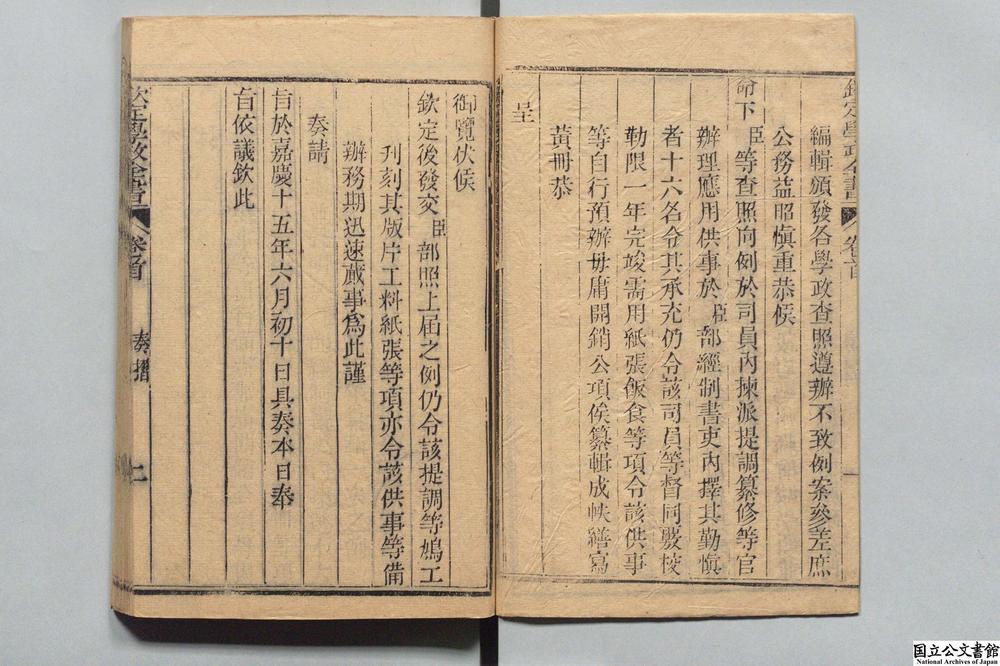 欽定學政全書
卷首
一
編輯頒發各學政查照遵辦不致例案參差庶
公務益昭愼重恭候
命下臣等查照向例於司員內揀派提調纂修等官
辦理應用供事於臣部經制書吏內擇其勤愼
者十六名令其承充仍令該司員等督同覈校
勒限一年完竣需用紙張飯食等項令該供事
等自行預辦毋庸開銷公項俟纂輯成帙繕寫
黃冊恭
呈
御覽伏候
欽定後發交臣部照上届之例仍令該提調等鳩工
刊刻其版片工料紙張等項亦令該供事等備
辦務期迅速蕆事爲此謹
奏請
旨於嘉慶十五年六月初十日具奏本日奉
旨依議欽此
欽定學政全書
卷首
奏摺
二
国立公文書館
National Archives of Japan